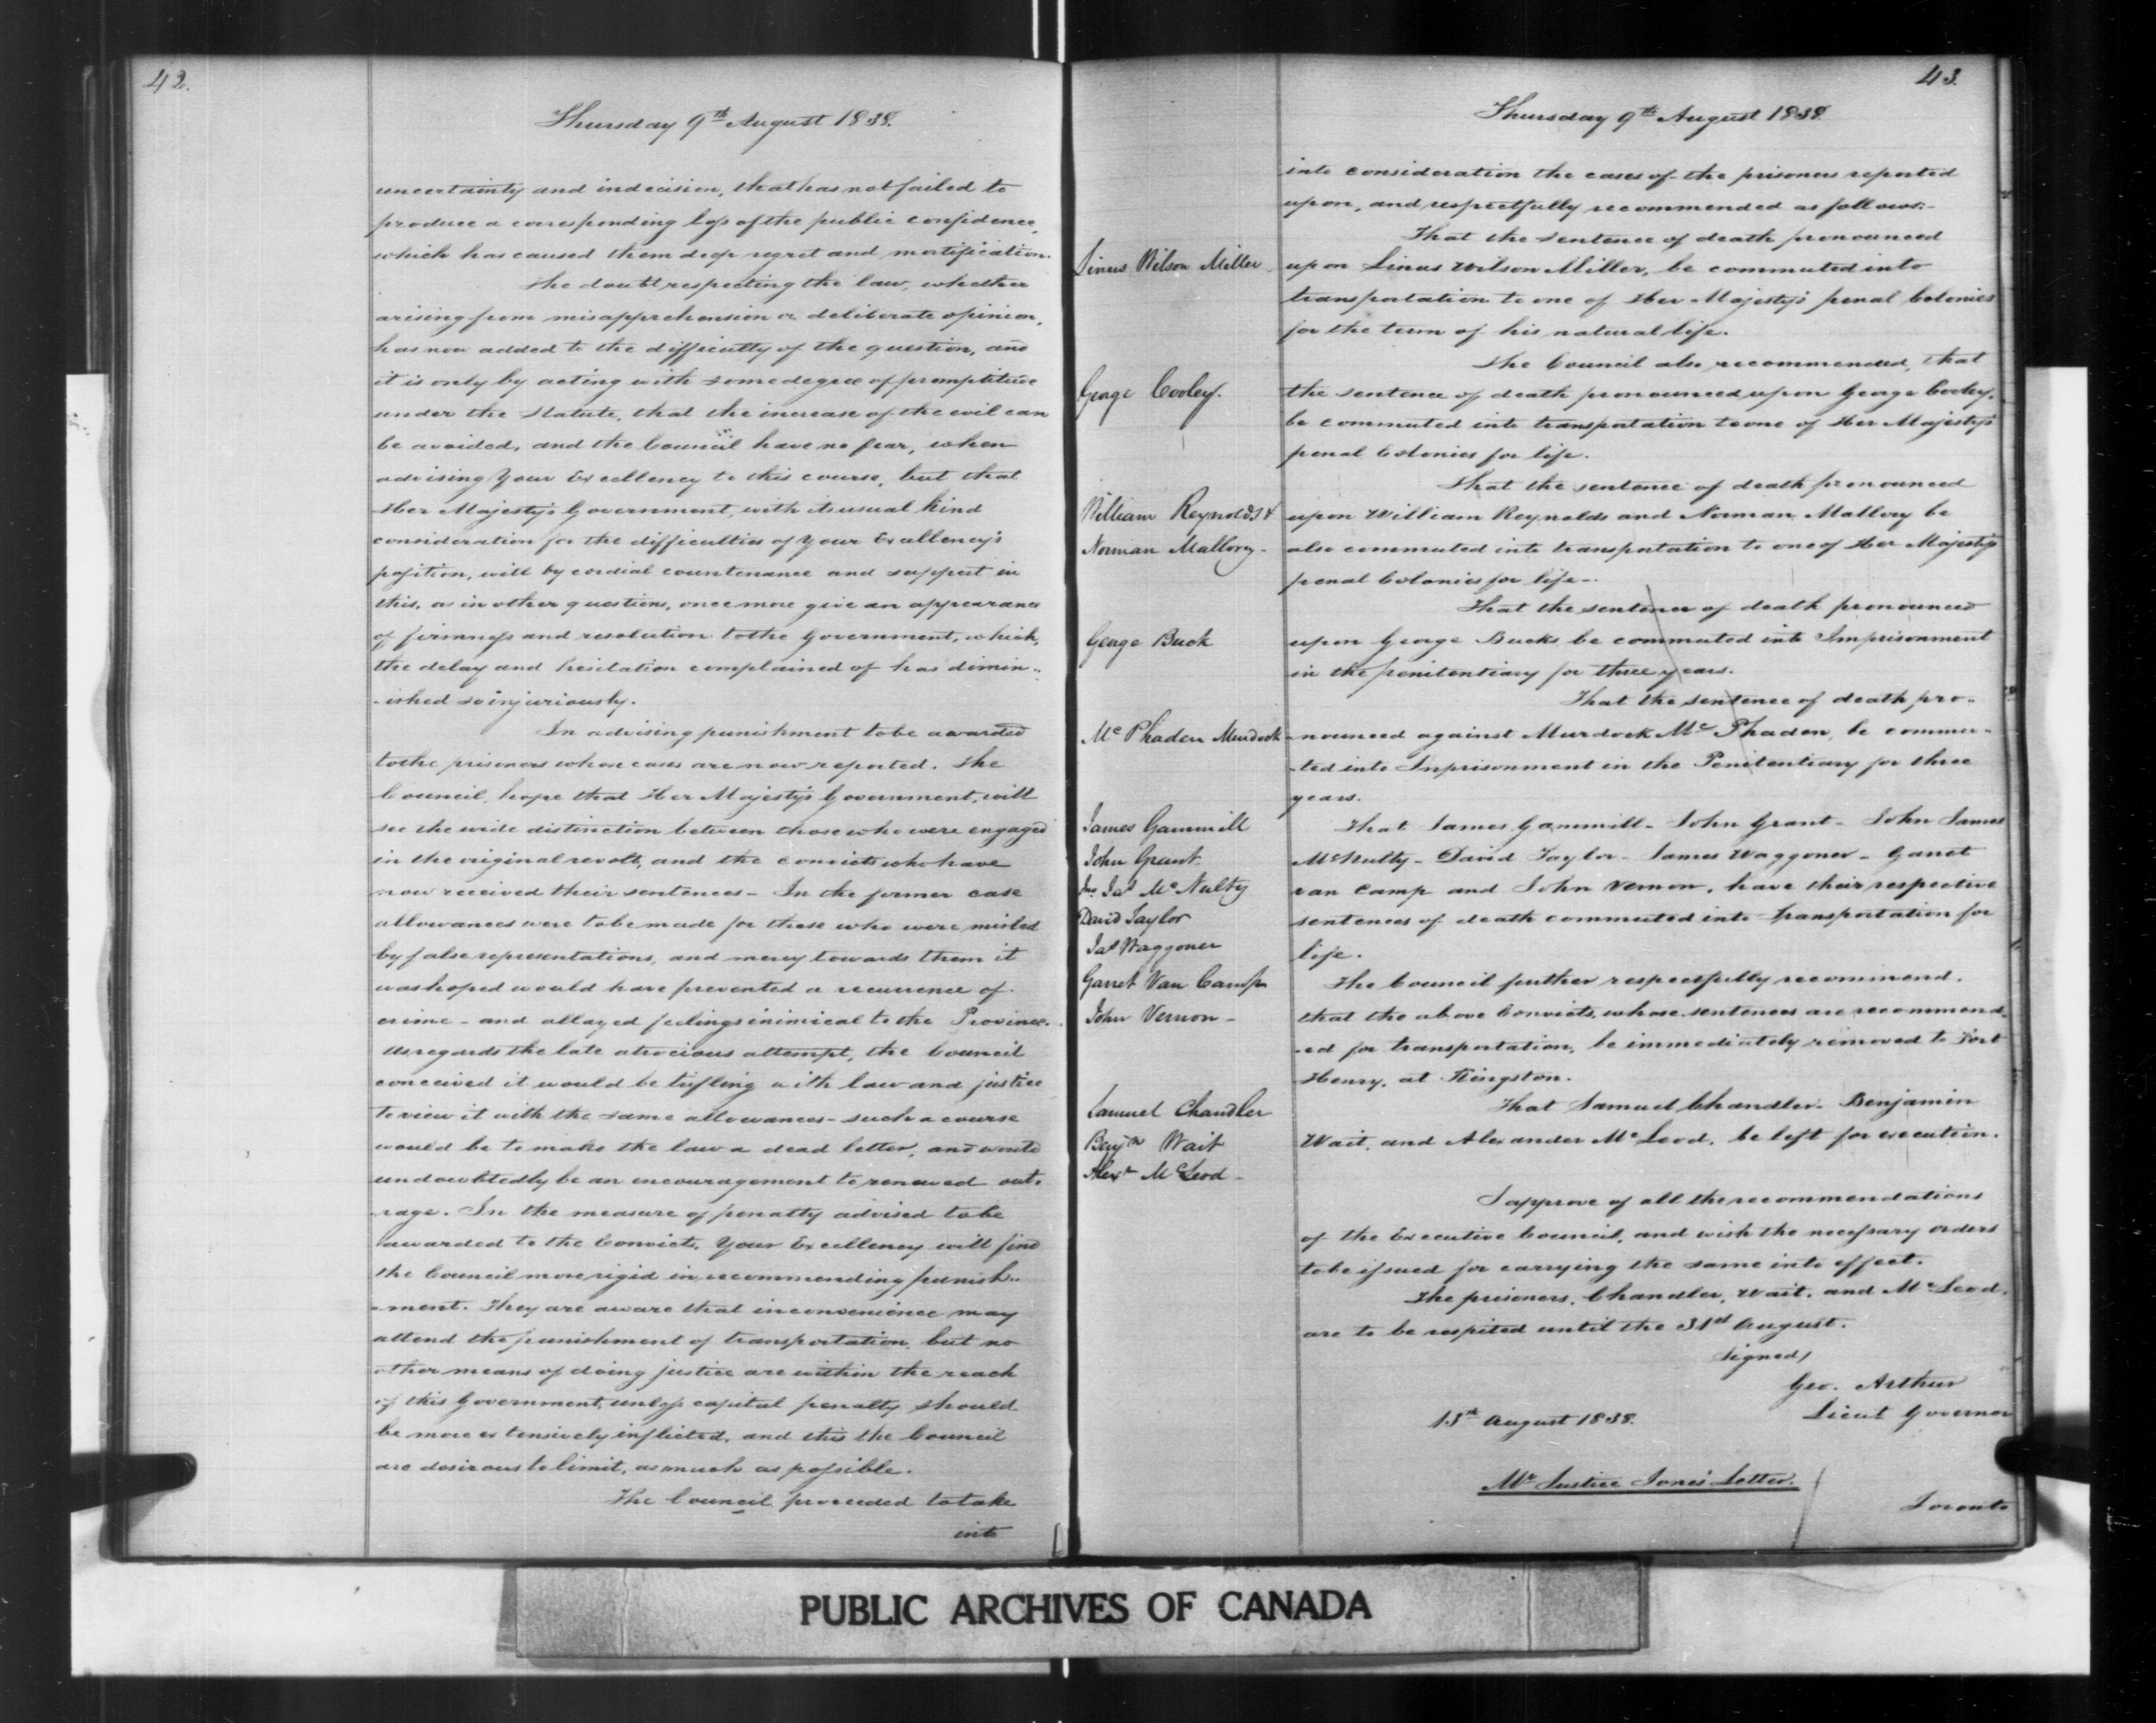 42.
Thursday 9th August 1838.
uncertainty and indecision, that has not failed to
produce a corresponding loss of the public confidence,
which has caused them deep regret and mortification.
The doubt respecting the law, whether
arising from misapprehension or deliberate opinion,
has now added to the difficulty of the question, and
it is only by acting with some degree of promptitude
under the Statute, that the increase of the evil can
be avoided, and the Council have no fear, when
advising Your Excellency to this course, but that
Her Majesty's Government, with its usual kind
consideration for the difficulties of Your Excellency's
position, will by cordial countenance and support in
this, as in other questions, once more give an appearance
of firmness and resolution to the Government, which,
the delay and hesitation complained of has dimin-
-ished so injuriously.
In advising punishment to be awarded
to the prisoners whose cases are now reported. The
Council, hope that Her Majesty's Government, will
see the wide distinction between those who were engaged
in the original revolt, and the convicts who have
now received their sentences - In the former case
allowances were to be made for those who were misled
by false representations, and mercy towards them it
was hoped would have prevented a recurrence of
crime - and allayed feelings inimical to the Province.
As regards the late atrocious attempt, the Council
conceived it would be trifling with law and justice
to view it with the same allowances - such a course
would be to make the law a dead letter, and would
undoubtedly be an encouragement to renewed out-
-rage. In the measure of penalty advised to be
awarded to the Convicts, Your Excellency will find
the Council more rigid in recommending punish-
-ment. They are aware that inconvenience may
attend the punishment of transportation, but no
other means of doing justice are within the reach
of this Government, unless capital penalty should
be more extensively inflicted, and this the Council
are desirous to limit, as much as possible.
The Council proceeded to take
into
43.
Thursday 9th August 1838.
into consideration the cases of the prisoners reported
upon, and respectfully recommended as follows:-
That the sentence of death pronounced
Linus Wilson Miller upon Linus Wilson Miller, be commuted into
transportation to one of Her Majesty's penal Colonies
for the term of his natural life.
The Council also recommended, that
George Cooley. the sentence of death pronounced upon George Cooley,
be commuted into transportation to one of Her Majesty's
penal Colonies for life.
That the sentence of death pronounced
William Reynolds & upon William Reynolds and Norman Mallory be
Norman Mallory - also commuted into transportation to one of Her Majesty's
penal Colonies for life -.
That the sentence of death pronounced
George Buck upon George Bucks be commuted into Imprisonment
in the penitentiary for three years.
That the sentence of death pro-
Mc Phaden Murdock -nounced against Murdock Mc Phaden, be commu-
-ted into Inprisonment in the Penitentiary for three
years.
James Gammill That James Gammill - John Grant - John James
John Grant McNulty - David Taylor - James Waggoner - Garret
Jno. Jas Mc Nulty van Camp and John Vernon, have their respective
David Taylor sentences of death commuted into transportation for
Jas Waggoner life.
Garret Van Camp The Council further respectfully recommend.
John Vernon - that the above Convicts, whose sentences are recommend-
-ed for transportation, be immediately removed to Fort
Henry, at Kingston.
Samuel Chandler That Samuel Chandler - Benjamin
Benjn Wait Wait, and Alexander McLeod, be left for execution.
Alexr McLeod -
I approve of all the recommendations
of the Executive Council, and wish the necessary orders
to be issued for carrying the same into effect.
The prisoners, Chandler, Wait, and McLeod,
are to be respited until the 31st August.
Signed/
Geo. Arthur
13th August 1838. Lieut Governor
Mr Justice Jones' Letter.
Toronto
PUBLIC ARCHIVES OF CANADA